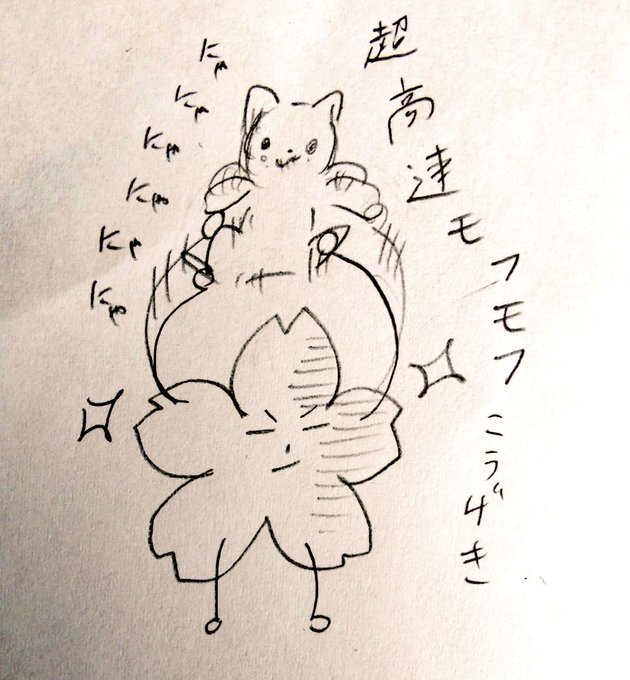 超高速モフモフこうげき
にゃにゃにゃにゃにゃにゃ